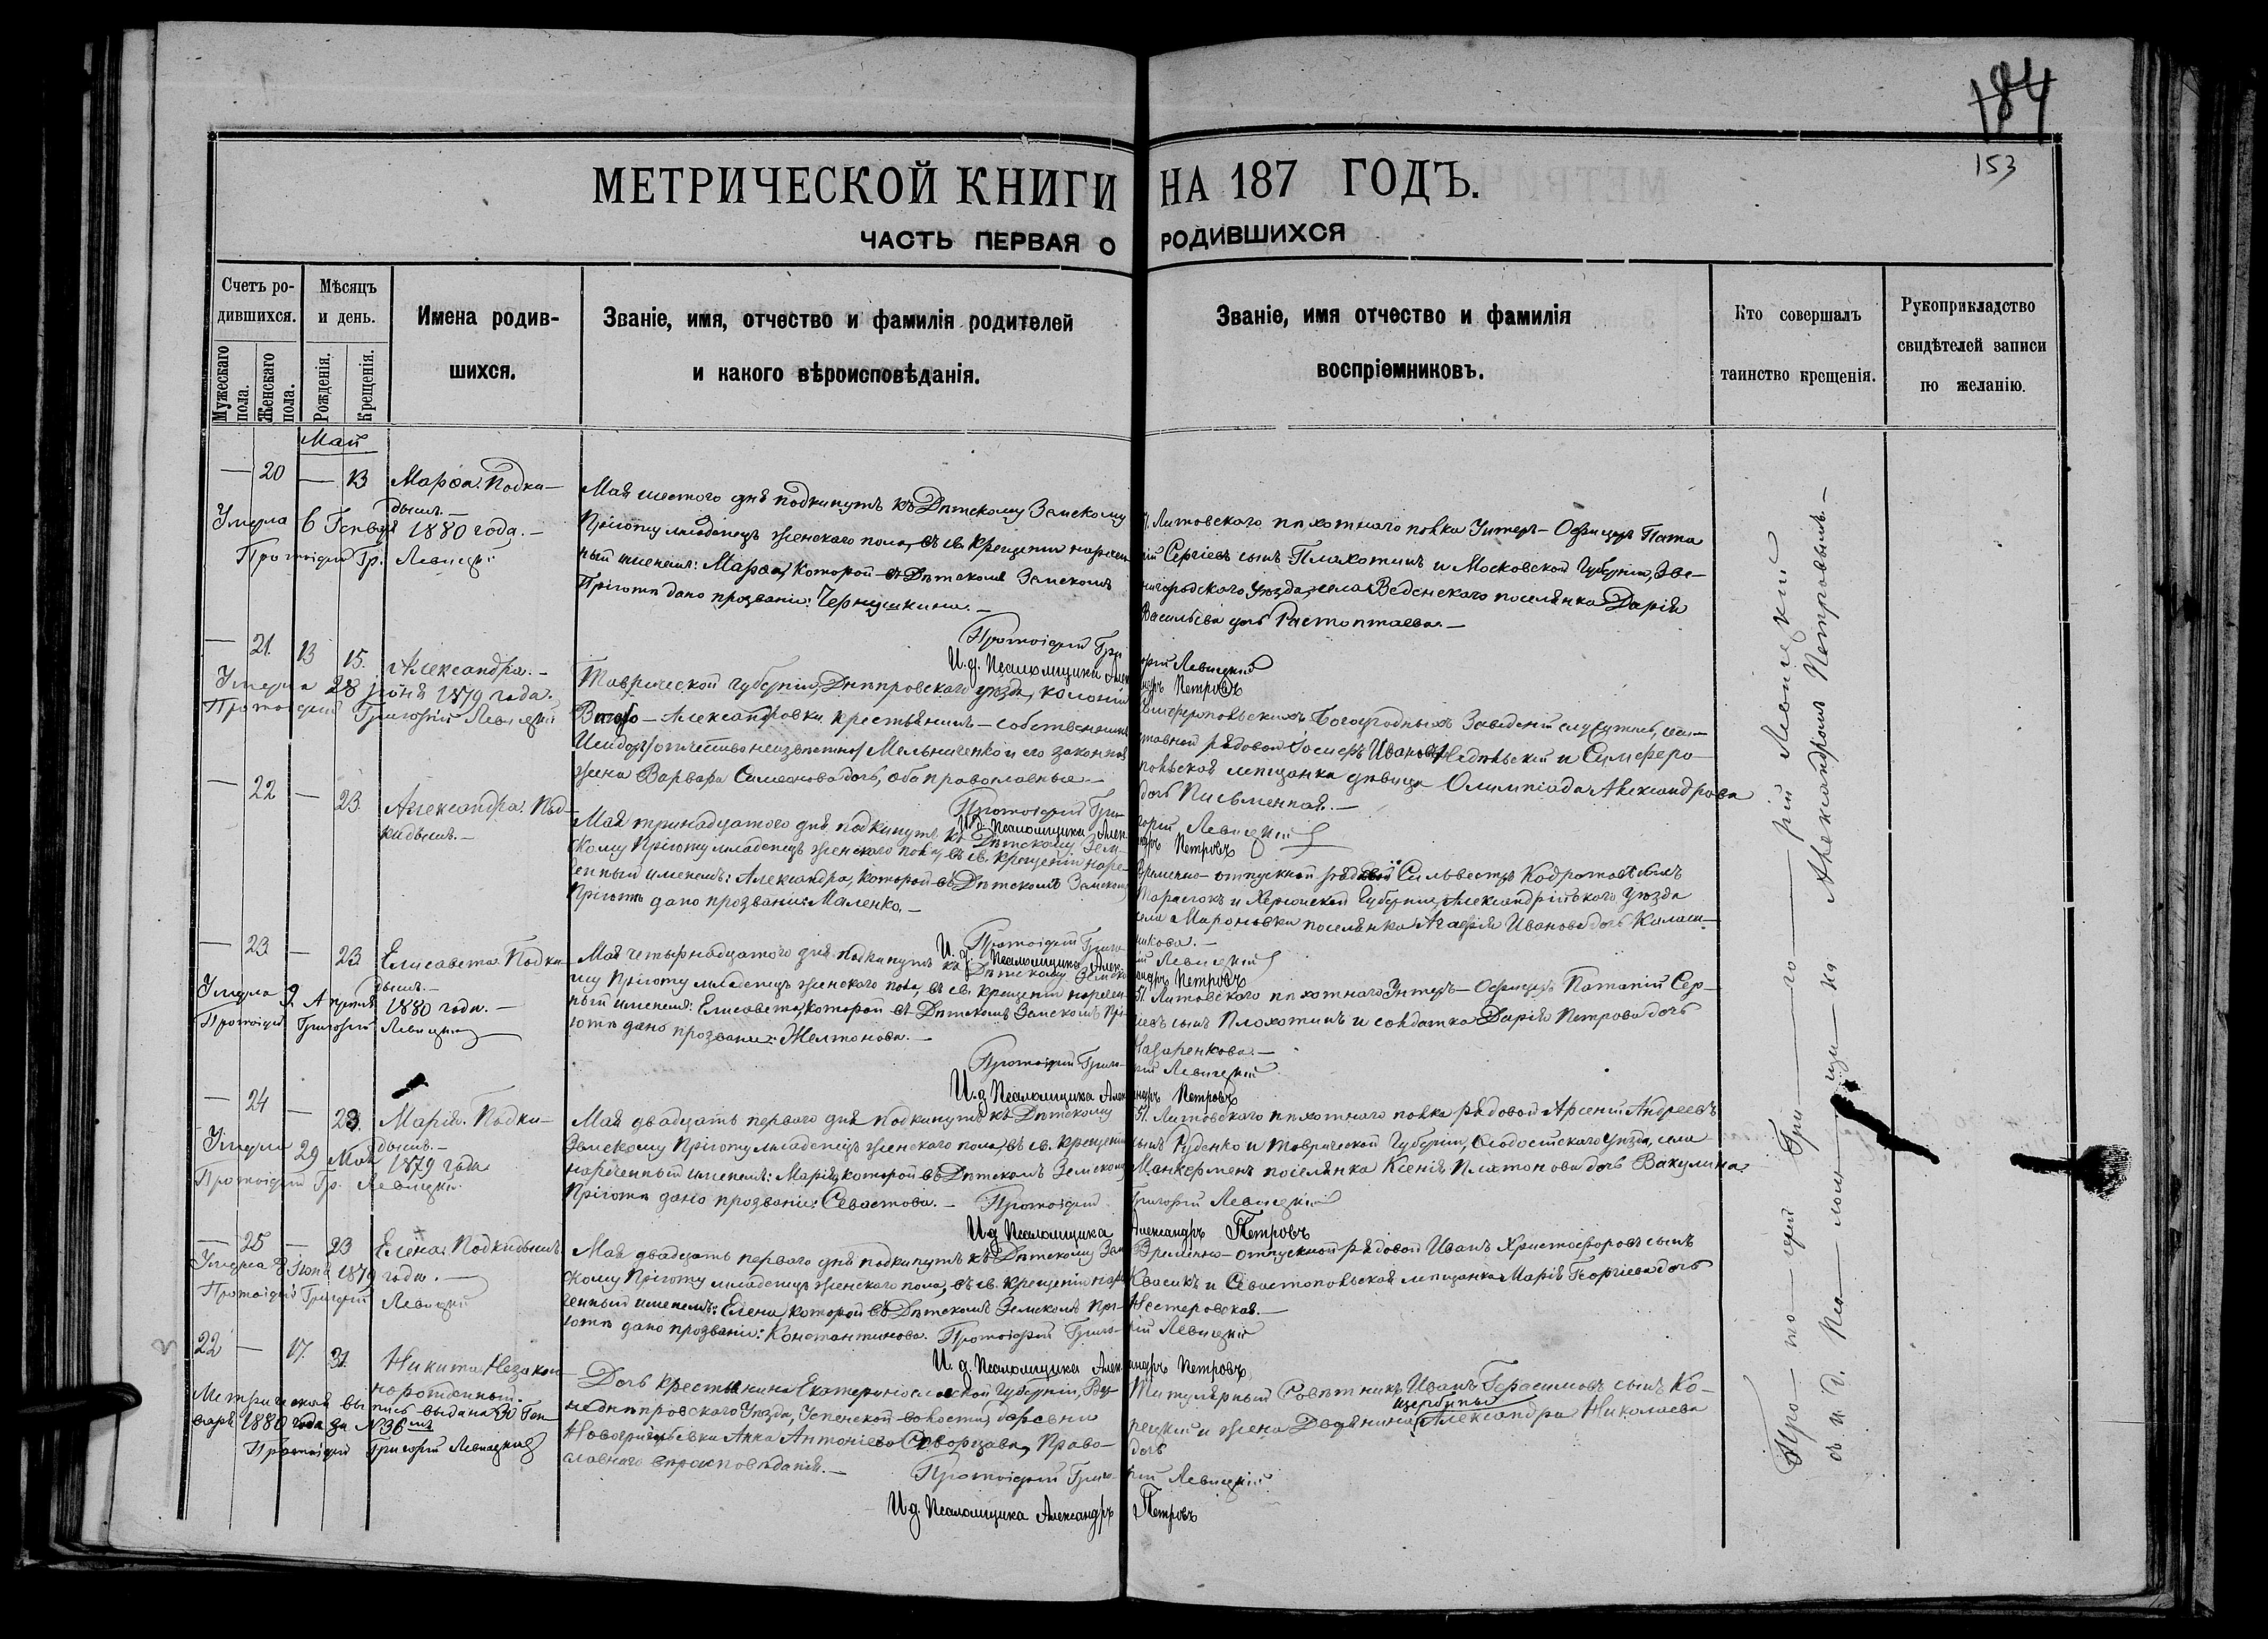 184
153
МЕТРИЧЕСКОЙ КНИГИ НА 187 ГОДЪ.
ЧАСТЬ ПЕРВАЯ О РОДИВШИХСЯ
Счетъ ро-
дившихся.
Мужескаго пола.
Женскаго пола.
Мѣсяцъ
и день.
Рожденія.
Крещенія.
Имена родив-
шихся.
Званіе, имя, отчество и фамилія родителей
и какого вѣроисповѣданія.
Званіе, имя отчество и фамилія
воспріемниковъ.
Кто совершалъ
таинство крещенія.
Рукоприкладство
свидѣтелей записи
по желанію.
Май
— 20 — 13 Марѳа. Подки-
дышъ.—
Умерла 6 Генваря 1880 года.—
Протоіерей Гр. Левицкій
Мая шестого дня подкинутъ къ Дѣтскому Земскому
Пріюту младенецъ женскаго пола, въ св. крещеніи наречен
ный именемъ: Марѳа, которой въ Дѣтскомъ Земскомъ
Пріютѣ дано прозваніе: Чернушкина.—
51. Литовскаго пѣхотнаго полка Унтеръ-Офицеръ Пата
пій Сергіевъ сынъ Плохотинъ и Московской Губерніи, Зве-
нигородскаго Уѣзда, села Веденскаго поселянка Дарія
Васильева дочь Растоптаева.—
Протоіерей Григорій Левицкій
И. д. Псаломщика Александръ Петровъ
— 21. 13 15. Александра.—
Умерла 28 Іюня 1879 года.
Протоіерей Григорій Левицкій
Таврической Губерніи, Днѣпровскаго уѣзда, колоніи
Александровки крестьянинъ-собственникъ
Исидоръ (отчество неизвѣстно) Мельниченко и его законная
жена Варвара Симеонова дочь, оба православные.—
Симферопольскихъ Богоугодныхъ Заведеній служитель, от-
ставной рядовой Іосифъ Ивановъ и Симферо-
польская мещанка дѣвица Олимпіада Александрова
дочь Письменная.—
Протоіерей Григорій Левицкій
И. д. Псаломщика Александръ Петровъ
— 22 — 23. Александра. Под-
кидышъ.—
Мая тринадцатого дня подкинутъ къ Дѣтскому Зем-
скому Пріюту младенецъ женскаго пола, въ св. крещеніи наре-
ченный именемъ: Александра, которой въ Дѣтскомъ Земскомъ
Пріютѣ дано прозваніе: Маленко.—
Временно-отпускной рядовой Сильвестръ Кодратовъ сынъ
и Херсонской Губерніи, Александрійскаго Уѣзда
села Мароновки поселянка Агафія Иванова дочь Калаш-
никова.—
Протоіерей Григорій Левицкій
И. д. Псаломщика Александръ Петровъ
— 23 — 23. Елисавета. Подки-
дышъ.—
Умерла 9. Апрѣля 1880 года.—
Протоіерей Григорій Левицкій
Мая четырнадцатого дня подкинутъ къ Дѣтскому Земско
му Пріюту младенецъ женскаго пола, въ св. крещеніи наречен-
ный именемъ: Елисавета, которой въ Дѣтскомъ Земскомъ Прі-
ютѣ дано прозваніе: Желтонова.—
51. Литовскаго пѣхотнаго Унтеръ-Офицеръ Патапій Сер-
гіевъ сынъ Плохотинъ и солдатка Дарія Петрова дочь
Назаренкова.—
Протоіерей Григорій Левицкій
И. д. Псаломщика Александръ Петровъ
— 24 — 23. Марія. Подки-
дышъ.—
Умерла 29 Мая 1879 года.
Протоіерей Гр. Левицкій
Мая двадцать первого дня подкинутъ къ Дѣтскому
Земскому Пріюту младенецъ женскаго пола, въ св. крещеніи
нареченный именемъ: Марія, которой въ Дѣтскомъ Земскомъ
Пріютѣ дано прозваніе: Севастова.—
51. Литовскаго пѣхотнаго полка рядовой Арсеній Андреевъ
сынъ Руденко и Таврической Губерніи, Ѳеодосійскаго Уѣзда, села
Манкерменъ поселянка Ксенія Платонова дочь Вакулина.
Протоіерей Григорій Левицкій
И. д. Псаломщика Александръ Петровъ
— 25 — 23 Елена. Подкидышъ
Умерла 8 Іюня 1879 года.—
Протоіерей Григорій Левицкій
Мая двадцать первого дня подкинутъ къ Дѣтскому Зем
скому Пріюту младенецъ женскаго пола, въ св. крещеніи наре
ченный именемъ: Елена, которой въ Дѣтскомъ Земскомъ Прі-
ютѣ дано прозваніе: Константинова.
Временно-отпускной рядовой Иванъ Христофоровъ сынъ
Квасикъ и Севастопольская мещанка Марія Георгіева дочь
Нестеровская.—
Протоіерей Григорій Левицкій
И. д. Псаломщика Александръ Петровъ
22 — 17. 31. Никита Незакон-
норожденный.
Метрическая выпись выдана 30 Ген-
варя 1880 года за №36мъ
Протоіерей Григорій Левицкій
Дочь крестьянина Екатеринославской Губерніи, Вер-
хнеднѣпровскаго Уѣзда, Успенской волости, деревни
Новогригорьевки Анна Антоніева Скворцова, Право-
славнаго вѣроисповѣданія.—
Титулярный Совѣтникъ Иванъ Герасимовъ сынъ Ко-
рецкій и жена Дворянина Щербины Александра Николаева
дочь
Протоіерей Григорій Левицкій
И. д. Псаломщика Александръ Петровъ
Про-то-іерей Гри-го-рій Левицкій
съ и. д. Пса-лом-щи-ка Александромъ Петровымъ.—